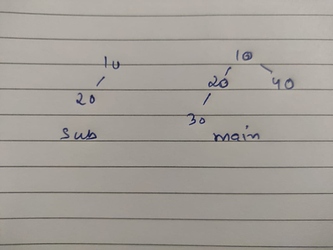 10 10
20 20 40
30
sub main